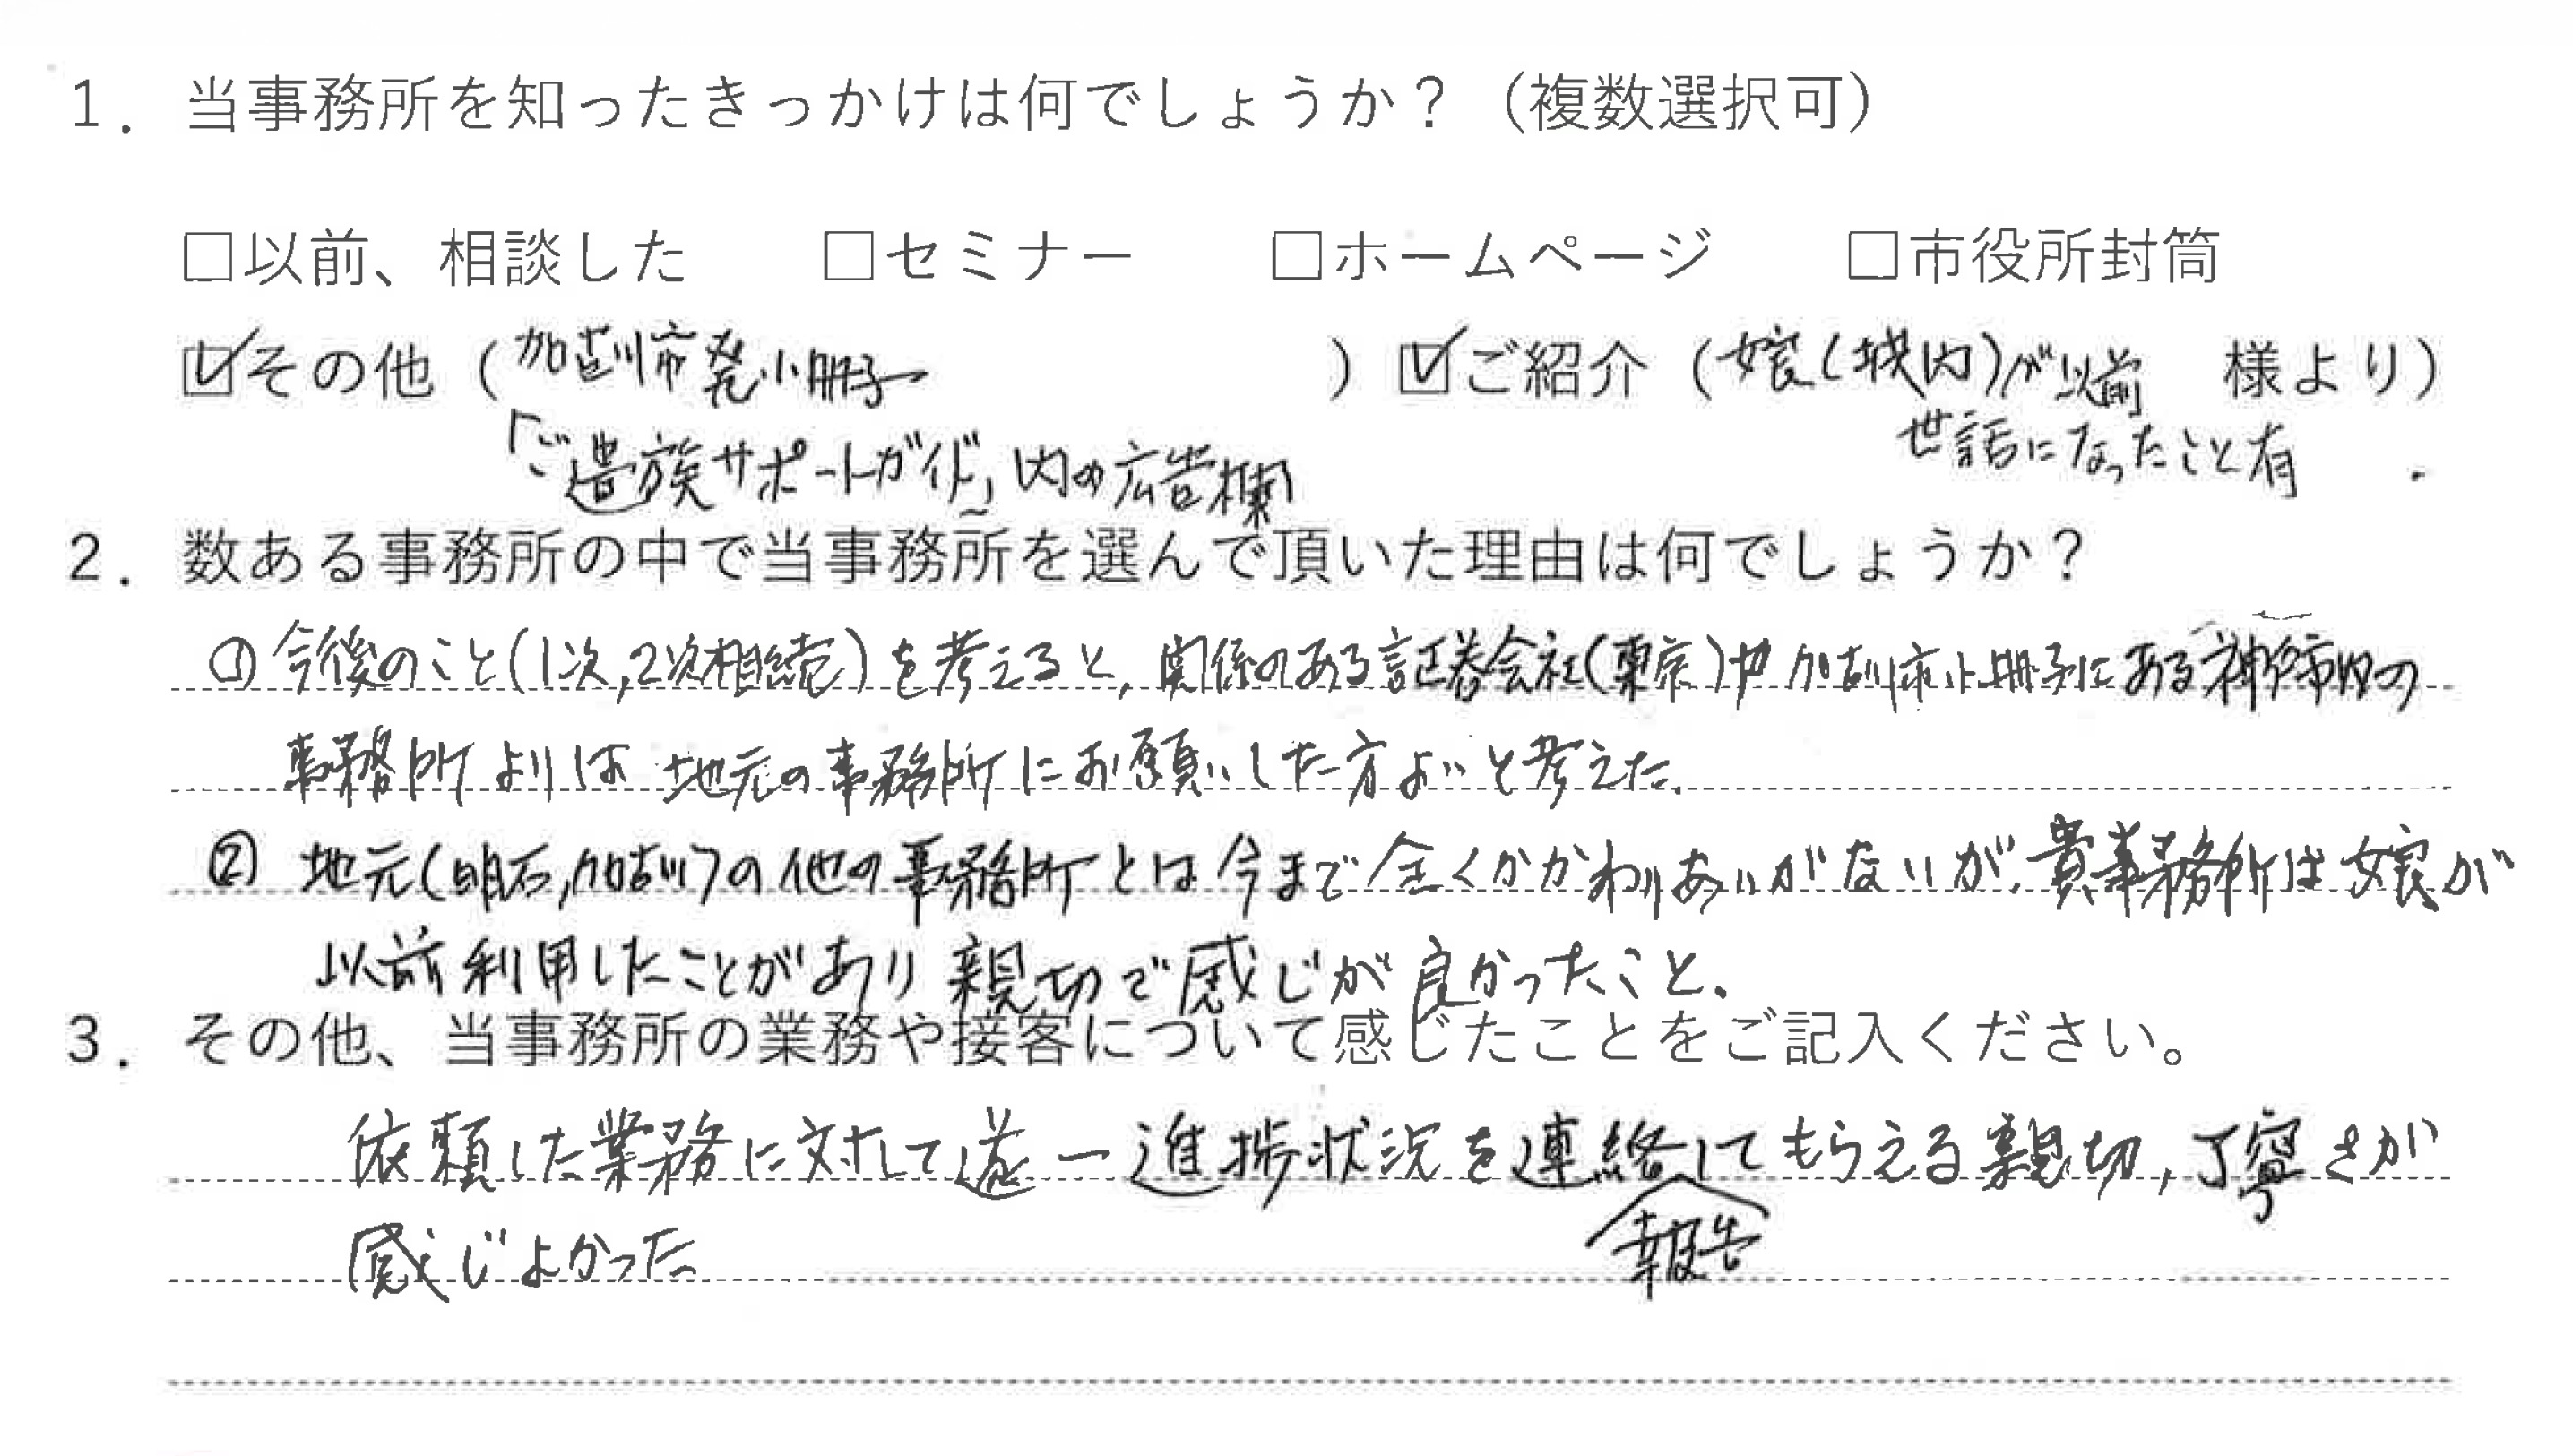 1. 当事務所を知ったきっかけは何でしょうか？（複数選択可）
□以前、相談した □セミナー □ホームページ □市役所封筒
☑その他（加古川市発小冊子 ）☑ご紹介（娘（城内）が以前 様より）
「ご遺族サポートガイド」内の広告欄 世話になったこと有
2. 数ある事務所の中で当事務所を選んで頂いた理由は何でしょうか？
① 今後のこと(1次,2次相続)を考えると,関係のある証券会社(東京)や加古川市小冊子にある神戸市内の
事務所よりは地元の事務所にお願いした方よいと考えた.
② 地元(明石,加古川)の他の事務所とは今まで全くかかわりあいがないが、貴事務所は娘が
以前利用したことがあり親切で感じが良かったこと、
3. その他、当事務所の業務や接客について感じたことをご記入ください。
依頼した業務に対して逐一進捗状況を連絡してもらえる親切,丁寧さが
報告
感じよかった